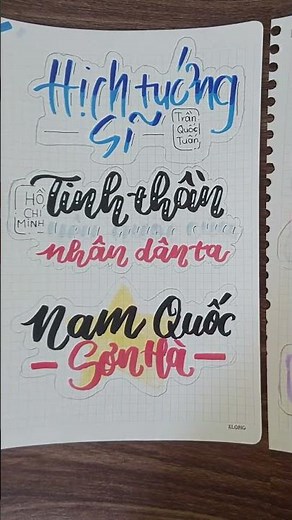 Hịch tướng
sĩ
Trần
Quốc
Tuấn
HỒ
CHÍ
MINH
Tinh thần
nhân dân ta
Nam Quốc
Sơn Hà
KLONG